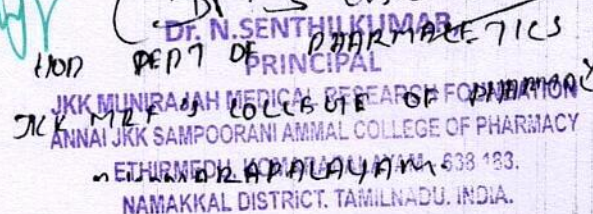 Dr. N.SENTHILKUMAR,
HOD DEPT OF PHARMACETICS
PRINCIPAL
JKK MUNIRAJAH MEDICAL RESEARCH FOUNDATION
JKK MRF'S COLLEGE OF PHARMACY
ANNAI JKK SAMPOORANI AMMAL COLLEGE OF PHARMACY
ETHIRMEDU, KOMARAPALAYAM - 638 183.
NAMAKKAL DISTRICT. TAMILNADU. INDIA.